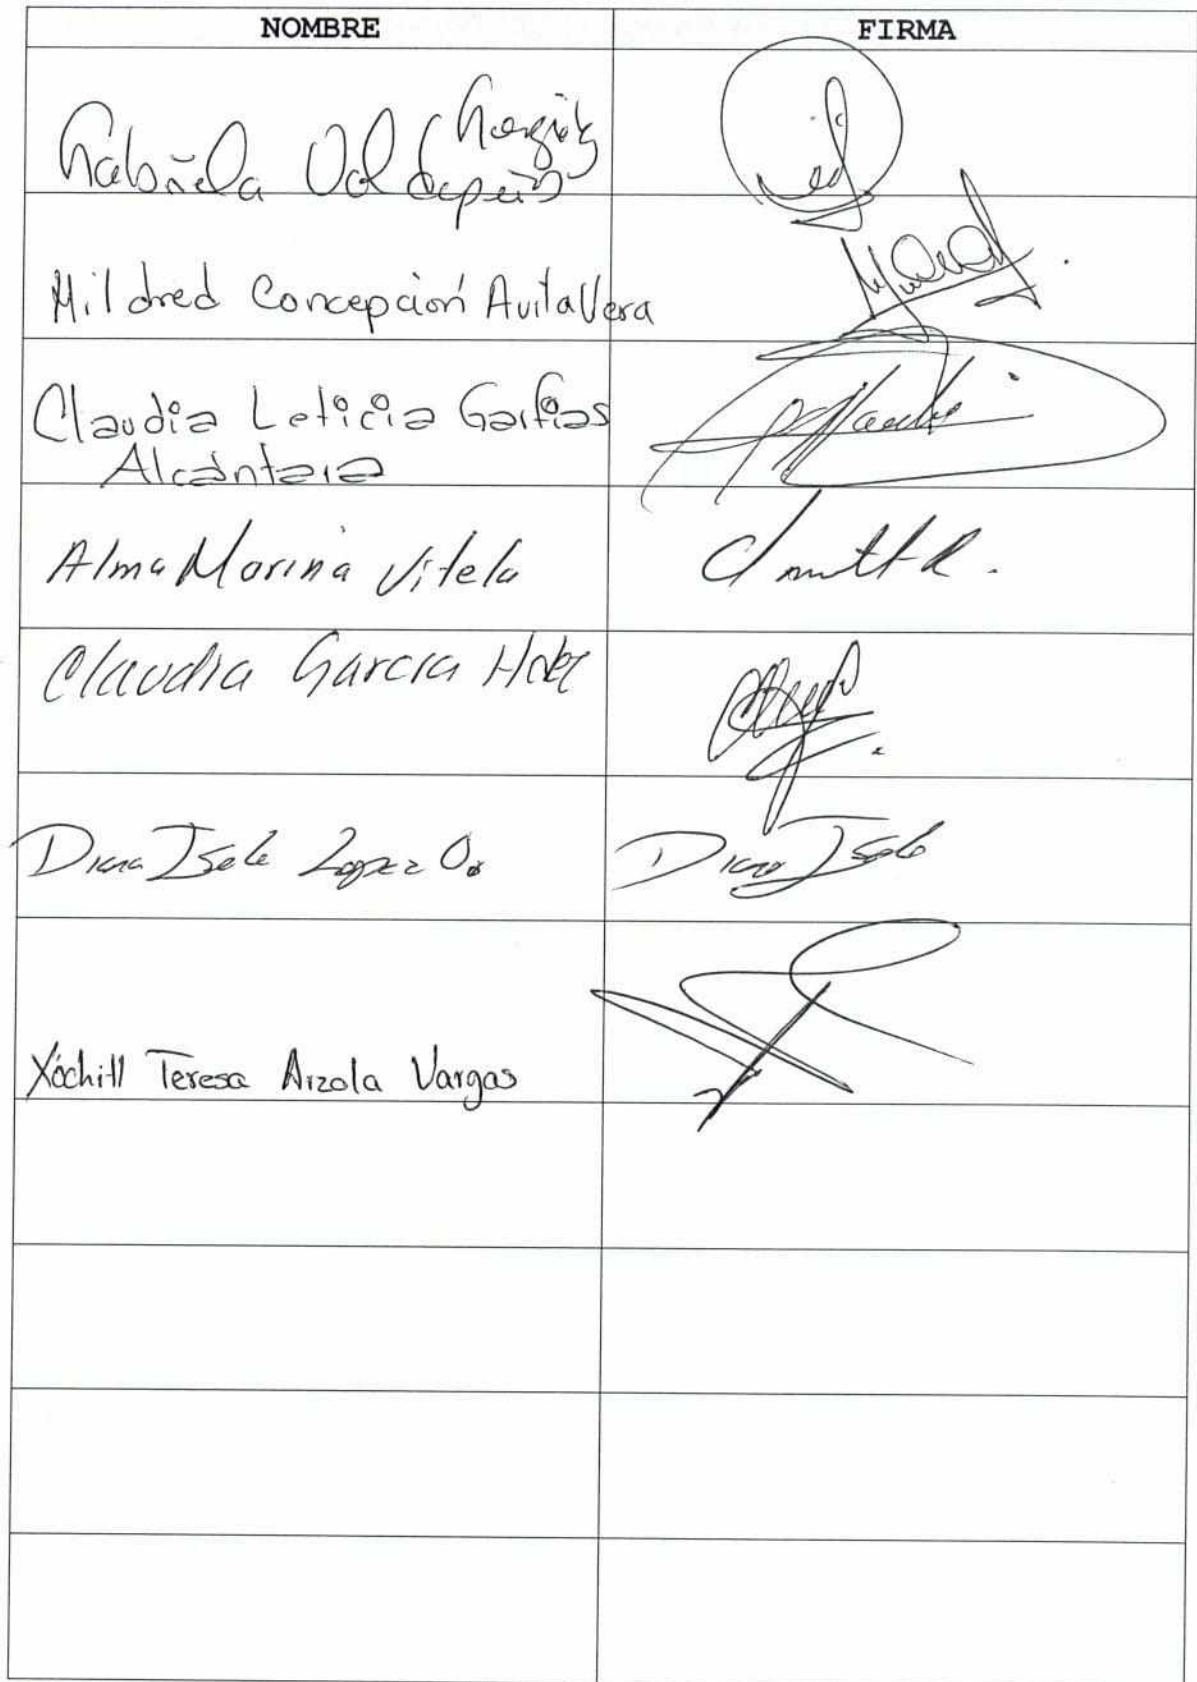 NOMBRE FIRMA
Gabriela Valdepeña González
Mildred Concepción Avila Vera
Claudia Leticia Garfias
Alcántara
Alma Marina Vitela
Claudia Garcia Hdez
Diana Isela Lopez O. Diana Isela
Xóchitl Teresa Arzola Vargas